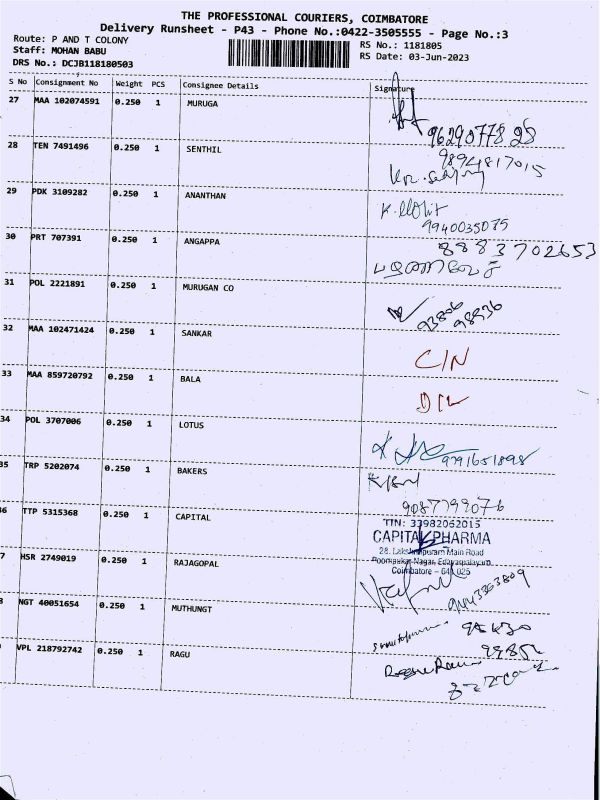 THE PROFESSIONAL COURIERS, COIMBATORE
Delivery Runsheet - P43 - Phone No.:0422-3505555 - Page No.:3
Route: P AND T COLONY
Staff: MOHAN BABU
DRS No.: DCJB118180503
RS No.: 1181805
RS Date: 03-Jun-2023
S No Consignment No Weight PCS Consignee Details Signature
27 MAA 102074591 0.250 1 MURUGA
9629077828
28 TEN 7491496 0.250 1 SENTHIL 9894817015
29 PDK 3109282 0.250 1 ANANTHAN
9940035075
30 PRT 707391 0.250 1 ANGAPPA 8883702653
31 POL 2221891 0.250 1 MURUGAN CO
93806
98836
32 MAA 102471424 0.250 1 SANKAR C/N
33 MAA 859720792 0.250 1 BALA D/L
34 POL 3707006 0.250 1 LOTUS
9791651898
35 TRP 5202074 0.250 1 BAKERS
9087799076
36 TTP 5315368 0.250 1 CAPITAL TIN: 33982062015
CAPITAL PHARMA
28, Lakshmipuram Main Road
Poompukar Nagar, Edayarpalayam
Coimbatore - 641 025
7 HSR 2749019 0.250 1 RAJAGOPAL
NGT 40051654 0.250 1 MUTHUNGT
VPL 218792742 0.250 1 RAGU